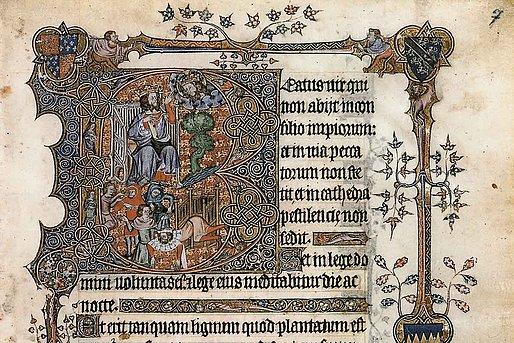 7
Beatus uir qui
non abijt in con
silio impiorum:
et in uia pecca
torum non ste
tit et in cathedra
pestilencie non
sedit.
Set in lege do
mini uoluntas lege eius meditabitur die ac
nocte.
Et erit tanquam lignum quod plantatum est